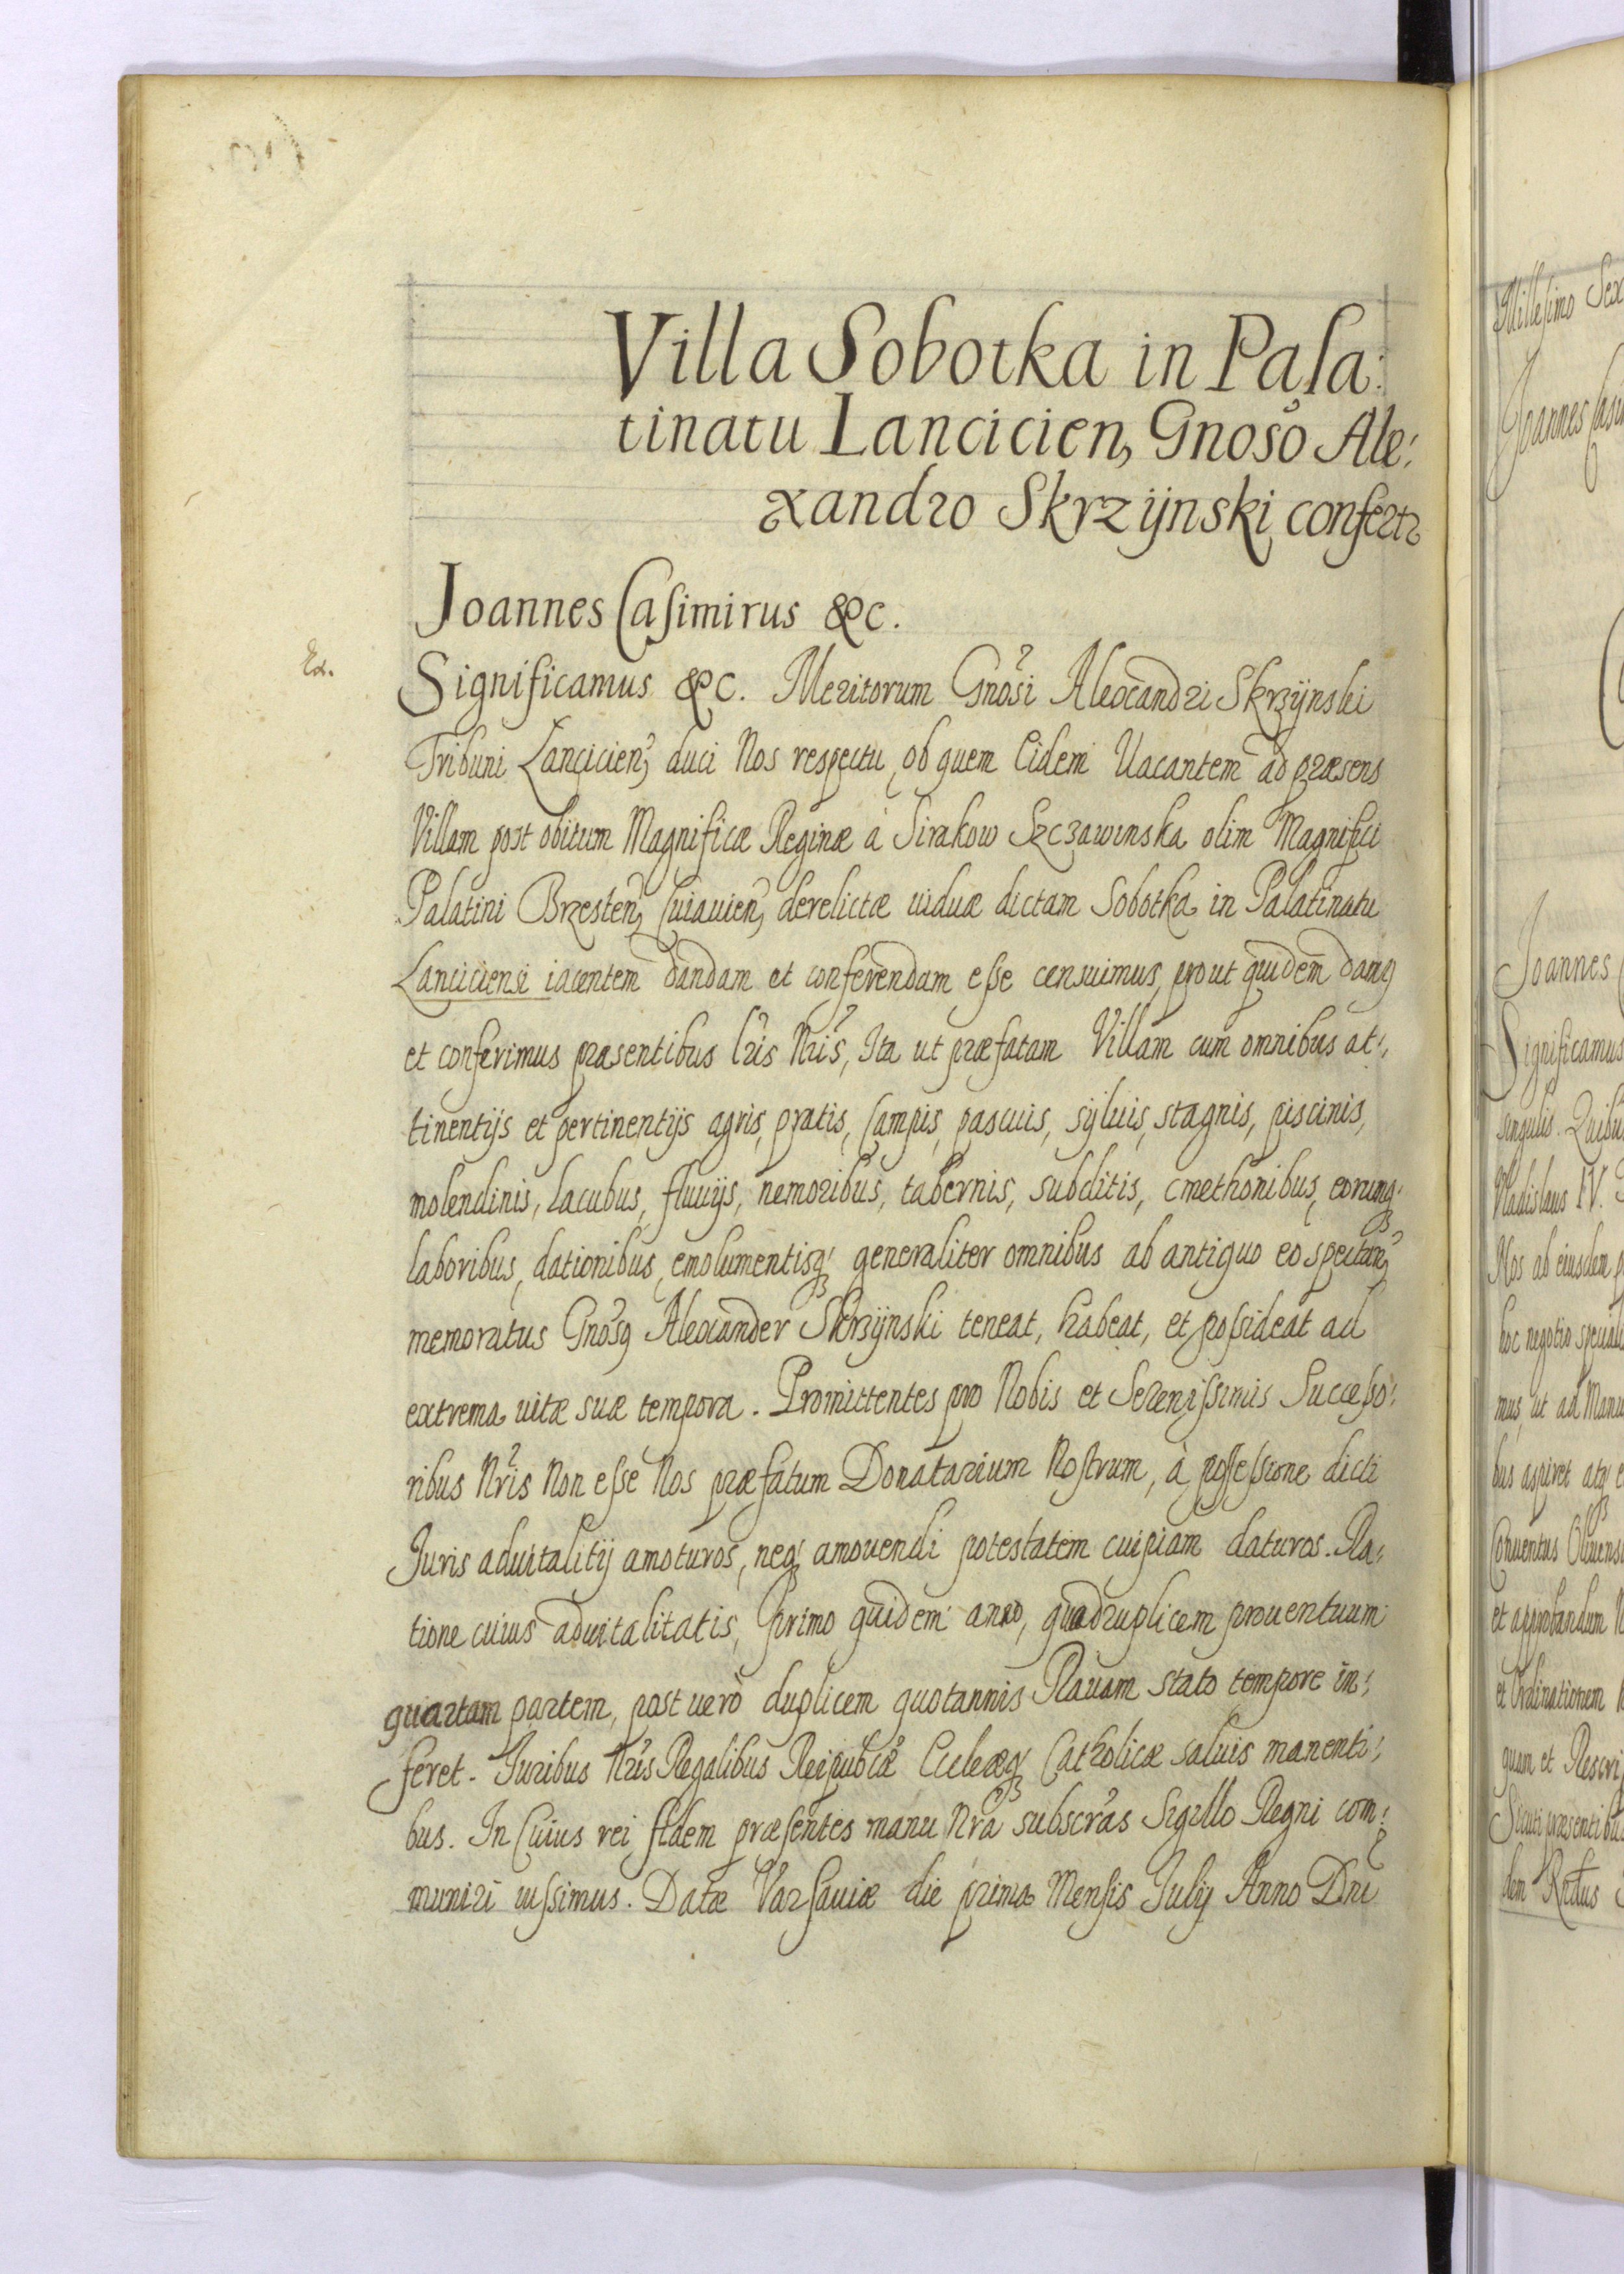 Villa Sobotka in Pala:
tinatu Lancicien, Gnoso Ale:
xandro Skrzÿnski confertr
Joannes Casimirus &c.
Ex.
Significamus &c. Meritorum Gnosi Alexandri Skrzÿnski
Tribuni Lancicien, duci Nos respectu, ob quem Eidem Vacantem ad præsens
Villam post obitum Magnificæ Reginæ à Sirakow Szczawinska olim Magnifici
Palatini Brzesten, Cuiauien, derelictæ uiduæ dictam Sobotka in Palatinatu
Lanciciensi iacentem dandam et conferendam esse censuimus, prout quidem damq
et conferimus præsentibus lris Nris, Ita ut præfatam Villam cum omnibus at:
tinentijs et pertinentijs agris, pratis, Campis, pascuis, syluis, stagnis, piscinis,
molendinis, lacubus, fluuijs, nemoribus, tabernis, subditis, cmethonibus, eorumq:
laboribus, dationibus, emolumentisq: generaliter omnibus ab antiquo eo spectan,
memoratus Gnosq Alexander Skrzÿnski teneat, habeat, et possideat ad
extrema uitæ suæ tempora. Promittentes pro Nobis et Serenissimis Successo:
ribus Nris Non esse Nos præfatum Donatarium Nostrum, à possessione dicti
Juris aduitalitij amoturos, neq: amouendi potestatem cuipiam daturos. Ra:
tione cuius aduitalitatis, primo quidem anno, quadruplicem prouentuum
quartam partem, post uerò duplicem quotannis Rauam stato tempore in:
feret. Juribus Nris Regalibus Reipublcæ Eccleæq: Catholicæ saluis manenti:
bus. In Cuius rei fidem præsentes manu Nra subscras Sigillo Regni com:
muniri iussimus. Datæ Varsauiæ die prima Mensis Julij Anno Dni
Joannes
Significamus
Vladislaus IV.
Nos ab eiusdem